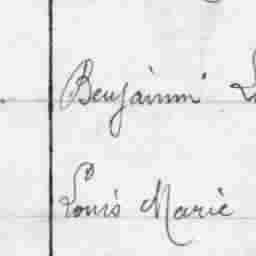 Benjamin
Louis Marie